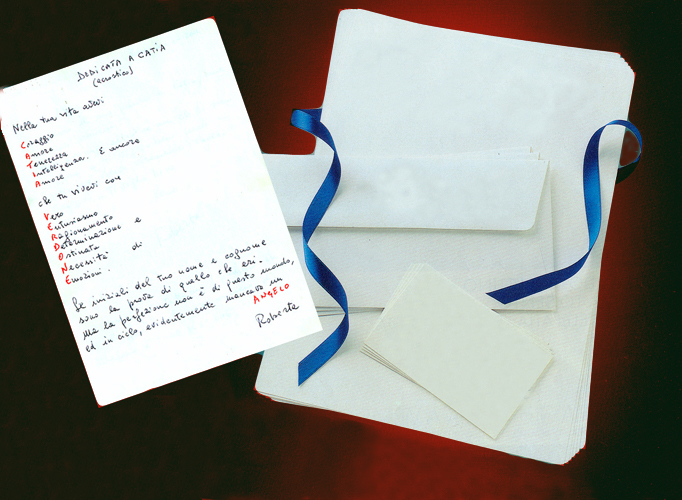 DEDICATA A CATIA
(acrostico)
Nella tua vita avevi
Coraggio
Amore
Tenerezza
Intelligenza. E ancora
Amore
che tu vivevi con
Vero
Entusiasmo
Ragionamento
Determinazione e
Ostinata
Necessità di
Emozioni.
Le iniziali del tuo nome e cognome
sono la prova di quello che eri.
Ma la perfezione non è di questo mondo,
ed in cielo, evidentemente mancava un
ANGELO
Roberta